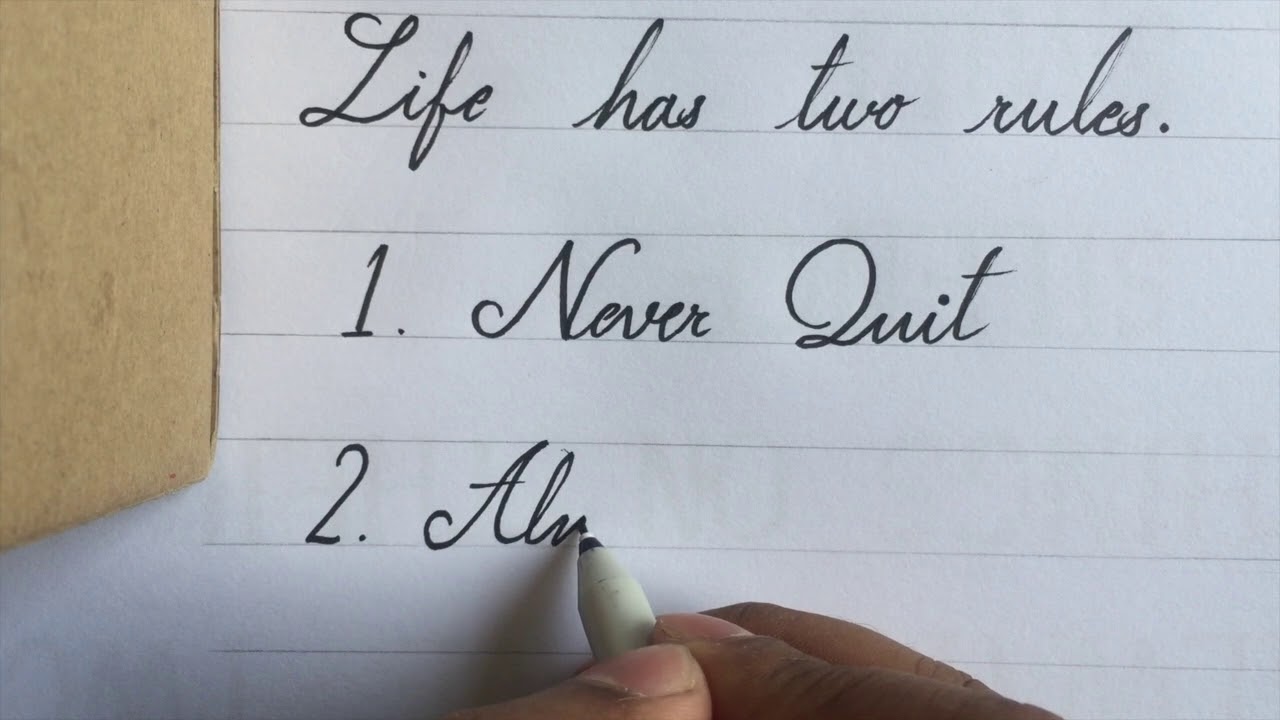 Life has two rules.
1. Never Quit
2. Al